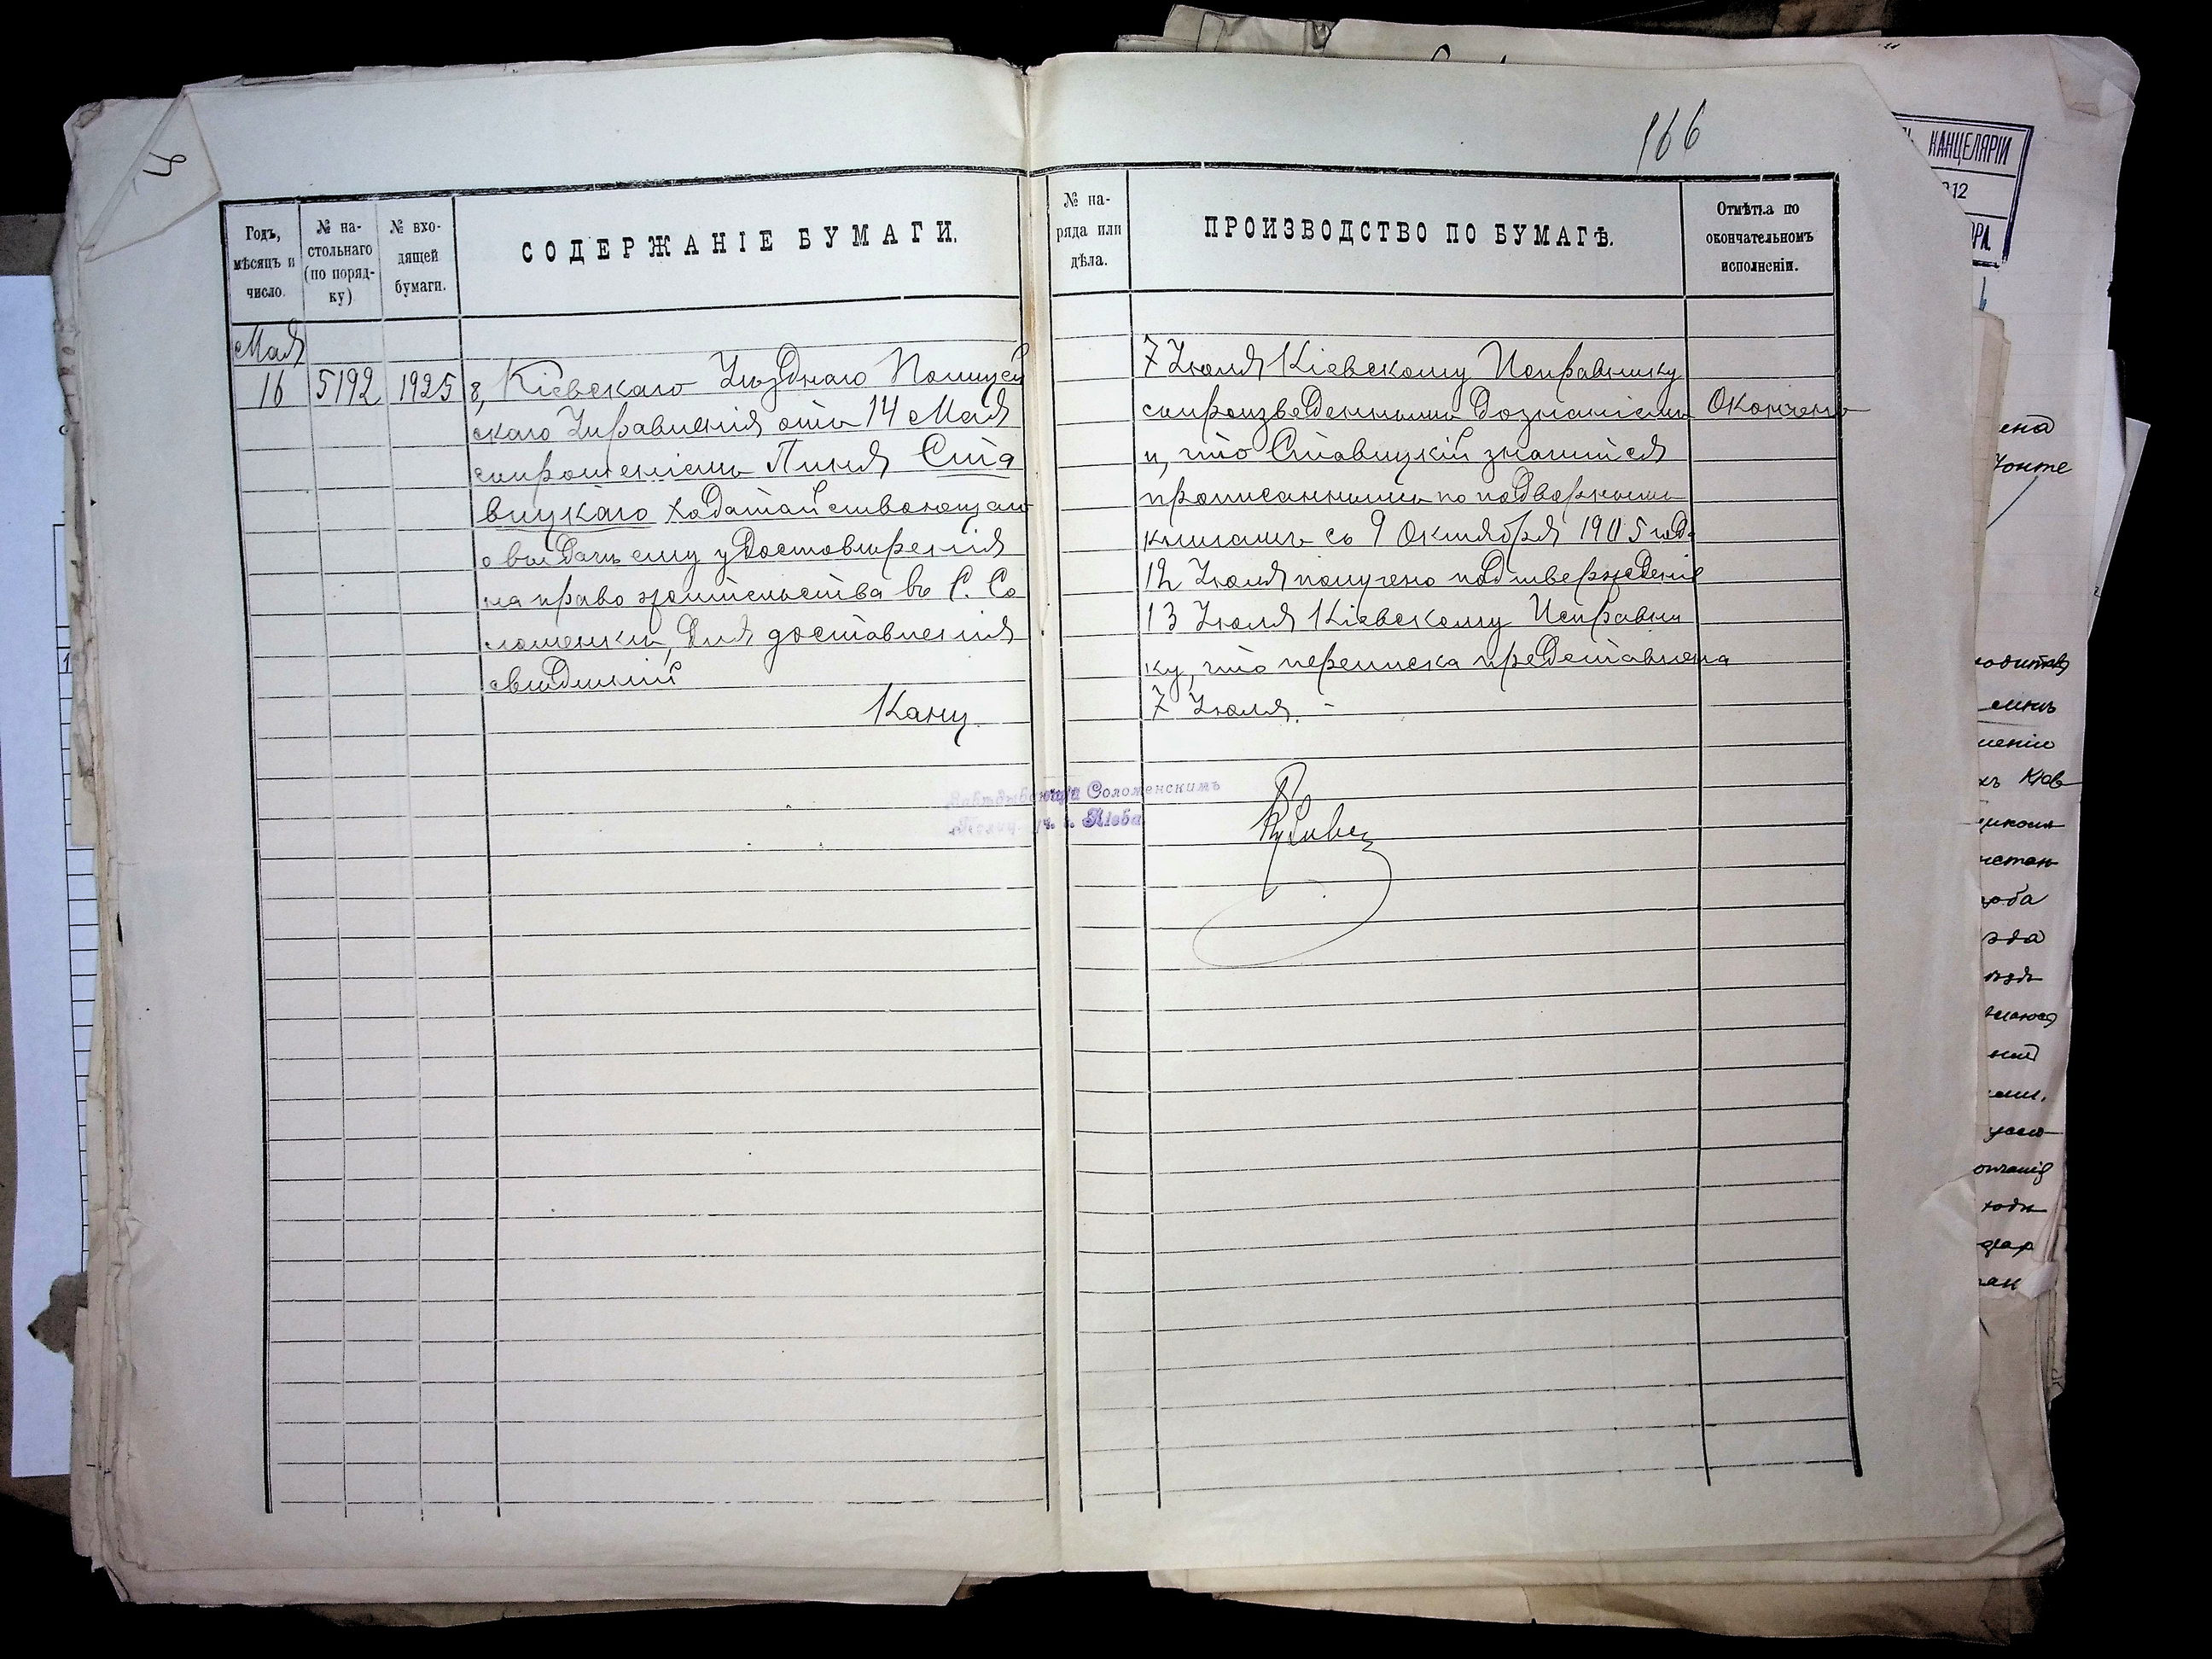 166
КАНЦЕЛЯРІИ
Годъ, мѣсяцъ и число.
№ настольнаго (по порядку)
№ входящей бумаги.
СОДЕРЖАНІЕ БУМАГИ.
№ наряда или дѣла.
ПРОИЗВОДСТВО ПО БУМАГѢ.
Отмѣтка по окончательномъ исполненіи.
Мая
16 5192 1925 8, Кіевскаго Уѣзднаго Полицей
скаго Управленія отъ 14 Мая
съ прошеніемъ Пиня Ста
вицкаго ходатайствующаго
о выдачѣ ему удостовѣренія
на право жительства въ С. Со
ломенки, для доставленія
свѣдѣній
Канц.
7 Іюля Кіевскому Исправнику
съ произведеннымъ дознаніемъ
и, что Ставицкій значится
прописаннымъ по подворнымъ
книгамъ съ 9 Октября 1905 года
12 Іюля получено подтвержденіе
13 Іюля Кіевскому Исправни
ку, что переписка представлена
7 Іюля. -
Окончено
Завѣдывающій Соломенскимъ
Полиц. уч. г. Кіева